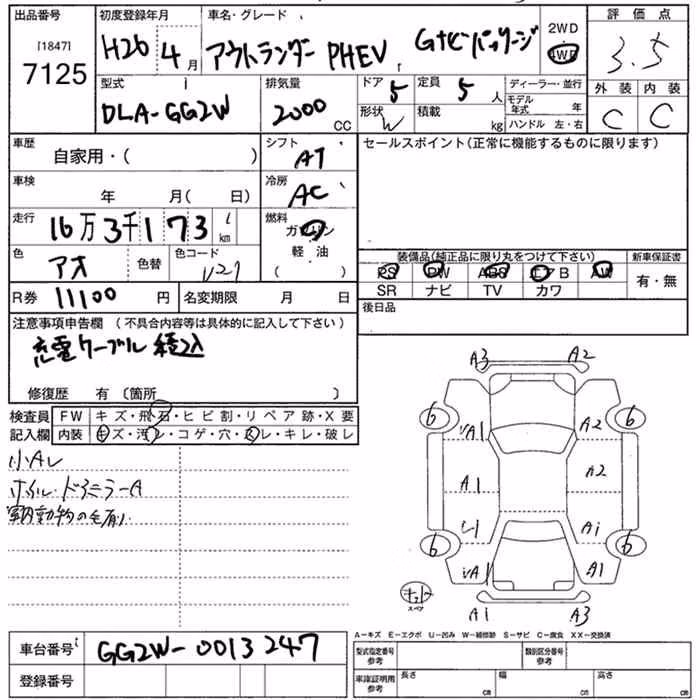 出品番号 初度登録年月 車名・グレード 2WD 評価点
[1847]
7125 H26 4月 アウトランダー PHEV Gナビパッケージ 4WD 3.5
型式 排気量 ドア 5 定員 5人 ディーラー・並行 外装 内装
DLA-GG2W 2000 CC 形状 W 積載 kg モデル年式 年 C C
ハンドル 左・右
車歴 自家用・( ) シフト AT セールスポイント(正常に機能するものに限ります)
車検 年 月( 日) 冷房 AC
走行 16万3千173 km 燃料 ガソリン
軽油
( )
色 アオ 色替 色コード 装備品(純正品に限り丸をつけて下さい) 新車保証書
PS PW ABS エアB AW 有・無
SR ナビ TV カワ
R券 11100円 名変期限 月 日 後日品
注意事項申告欄 (不具合内容等は具体的に記入して下さい)
充電ケーブル積込
修復歴 有 〔箇所 〕
検査員 FW キズ・飛石・ヒビ割・リペア跡・X要
記入欄 内装 キズ・汚レ・コゲ・穴・スレ・キレ・破レ
A3 A2
6 6
A1 A2
A1 A2
A1
6 6
A1 A1
スペア
A1 A3
小Aレ
A-キズ E-エクボ U-凹み W-補修跡 S-サビ C-腐食 XX-交換済
車台番号 GG2W-0013247 型式指定番号 参考 類別区分番号 参考
登録番号 車庫証明用 参考 長さ cm 幅 cm 高さ cm